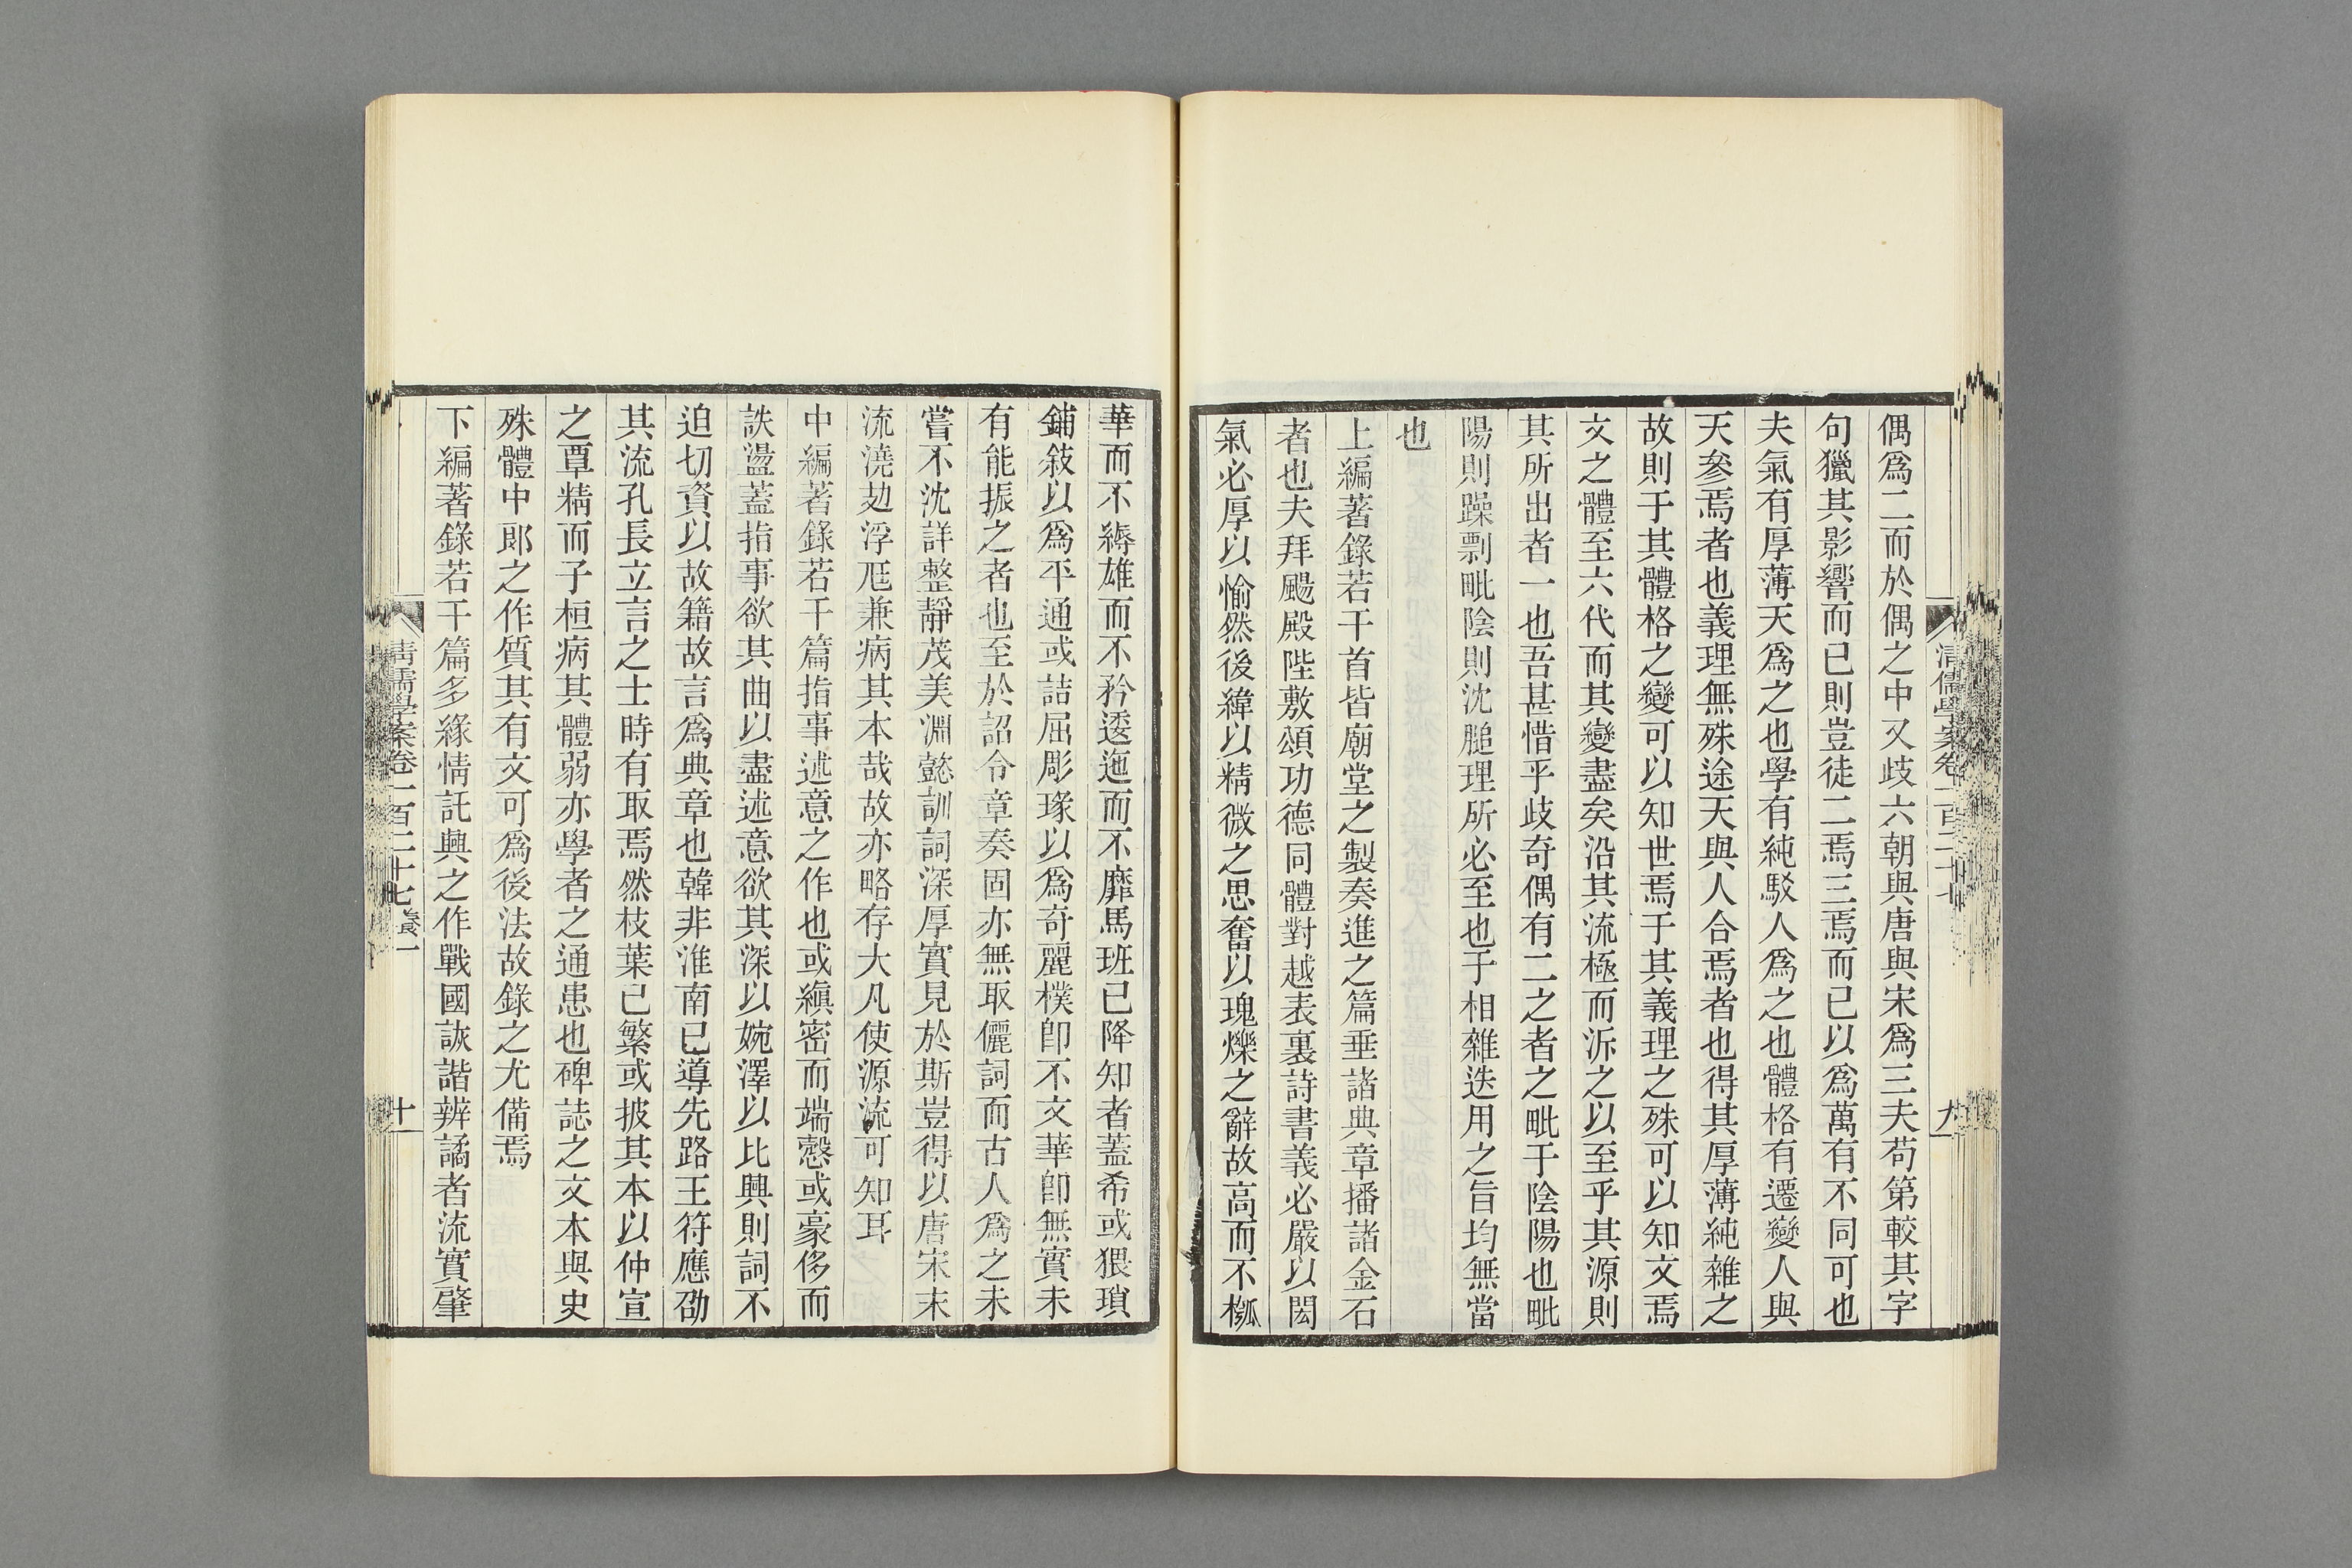 清儒學案卷一百二十七
九
偶爲二而於偶之中又歧六朝與唐與宋爲三夫苟第較其字
句獵其影響而已則豈徒二焉三焉而已以爲萬有不同可也
夫氣有厚薄天爲之也學有純駁人爲之也體格有遷變人與
天參焉者也義理無殊途天與人合焉者也得其厚薄純雜之
故則于其體格之變可以知世焉于其義理之殊可以知文焉
文之體至六代而其變盡矣沿其流極而泝之以至乎其源則
其所出者一也吾甚惜乎歧奇偶有二之者之毗于陰陽也毗
陽則躁剽毗陰則沈膇理所必至也于相雜迭用之旨均無當
也
上編著錄若干首皆廟堂之製奏進之篇垂諸典章播諸金石
者也夫拜颺殿陛敷頌功德同體對越表裏詩書義必嚴以閎
氣必厚以愉然後緯以精微之思奮以瑰爍之辭故高而不槬
華而不縟雄而不矜逶迤而不靡馬班已降知者蓋希或猥瑣
鋪敍以爲平通或詰屈彫瑑以爲奇麗樸卽不文華卽無實未
有能振之者也至於詔令章奏固亦無取儷詞而古人爲之未
嘗不沈詳整靜茂美淵懿訓詞深厚實見於斯豈得以唐宋末
流澆攰浮尫兼病其本哉故亦略存大凡使源流可知耳
中編著錄若干篇指事述意之作也或縝密而端愨或豪侈而
詄盪蓋指事欲其曲以盡述意欲其深以婉澤以比興則詞不
迫切資以故籍故言爲典章也韓非淮南已導先路王符應劭
其流孔長立言之士時有取焉然枝葉已繁或披其本以仲宣
之覃精而子桓病其體弱亦學者之通患也碑誌之文本與史
殊體中郞之作質其有文可爲後法故錄之尤備焉
下編著錄若干篇多緣情託興之作戰國詼諧辨譎者流實肇
清儒學案卷一百二十七養一
十